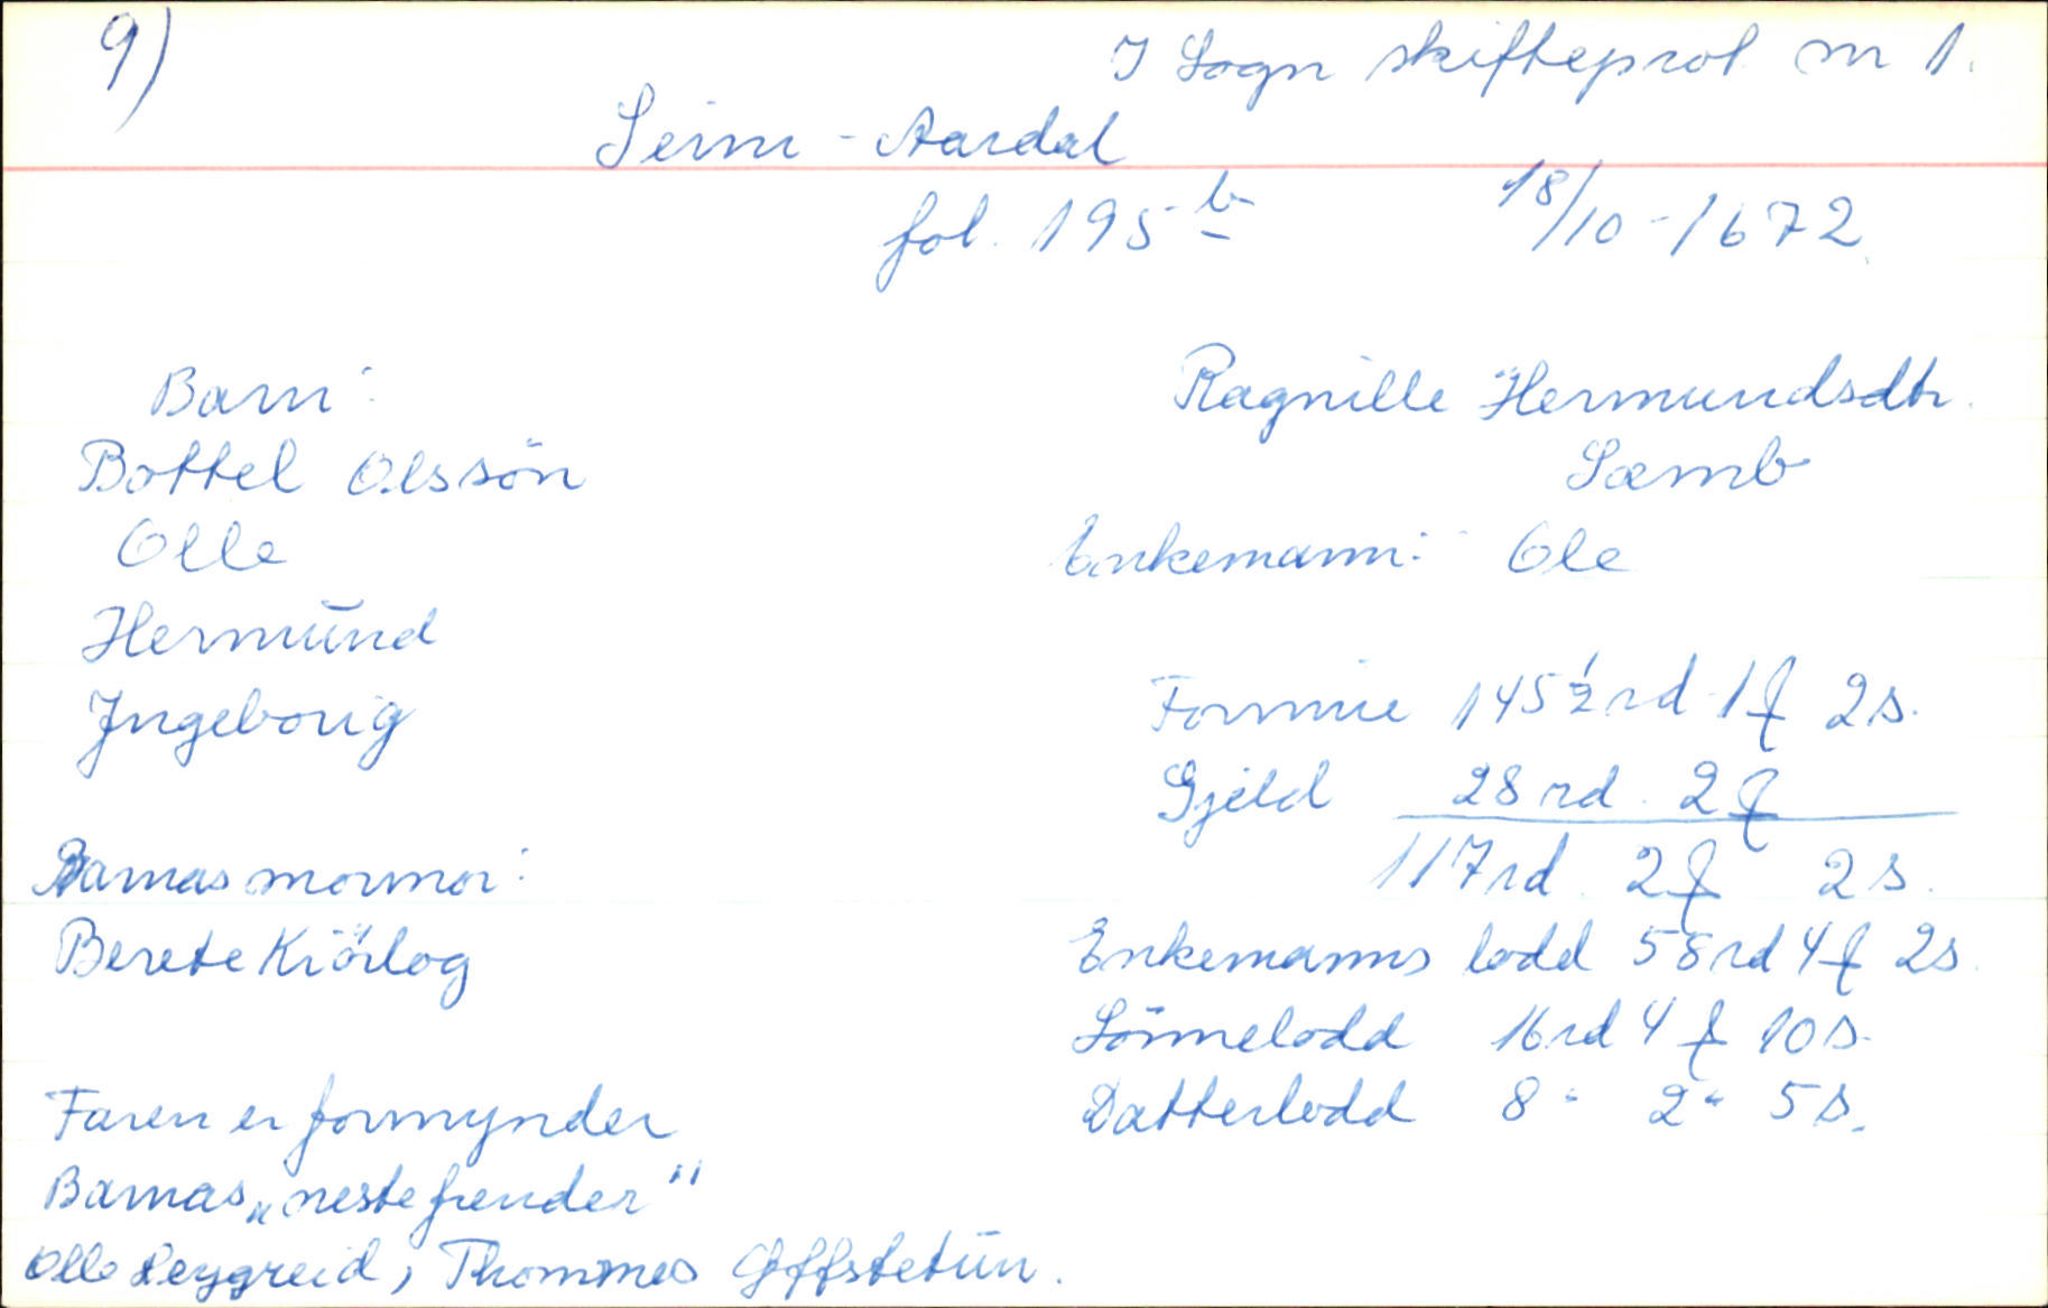 9)
I Sogn skifteprol nr 1.
Seim - Aardal
fol. 195 b
18/10-1672.
Barn:
Bottel Olssön
Olle
Hermŭnd
Ingeborig
Barnas mormor:
Berete Kiörlog
Faren er formynder
Barnas "neste frender"
Olle Leygreid, Thommes Offstetŭn.
Ragnille Hermundsdtr.
Sæmb
Enkemann: Ole
Formue 145 1/2 rd 1 f 2 s.
Gjeld 28 rd. 2 f
117 rd. 2 f 2 s.
Enkemanns lodd 58 rd 4 f 2 s.
Sönnelodd 16 rd 4 f 10 s.
Datterlodd 8 " 2 " 5 s.